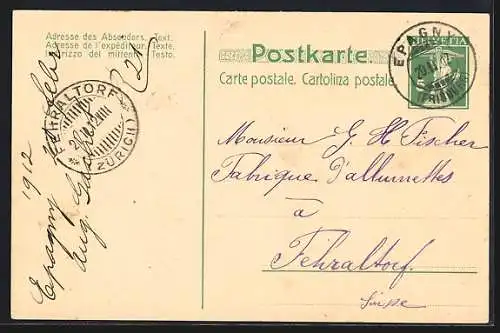 Adresse des Absenders. Text.
Adresse de l'expéditeur. Texte.
Indirizzo del mittente. Testo.
Postkarte
Carte postale. Cartolina postale
HELVETIA
EPAGNY
FEHRALTORF
(ZÜRICH)
Monsieur G. H Fischer
Fabrique D'allumettes
à
Fehraltorf.
Suisse
Epagny 1912
Aug.